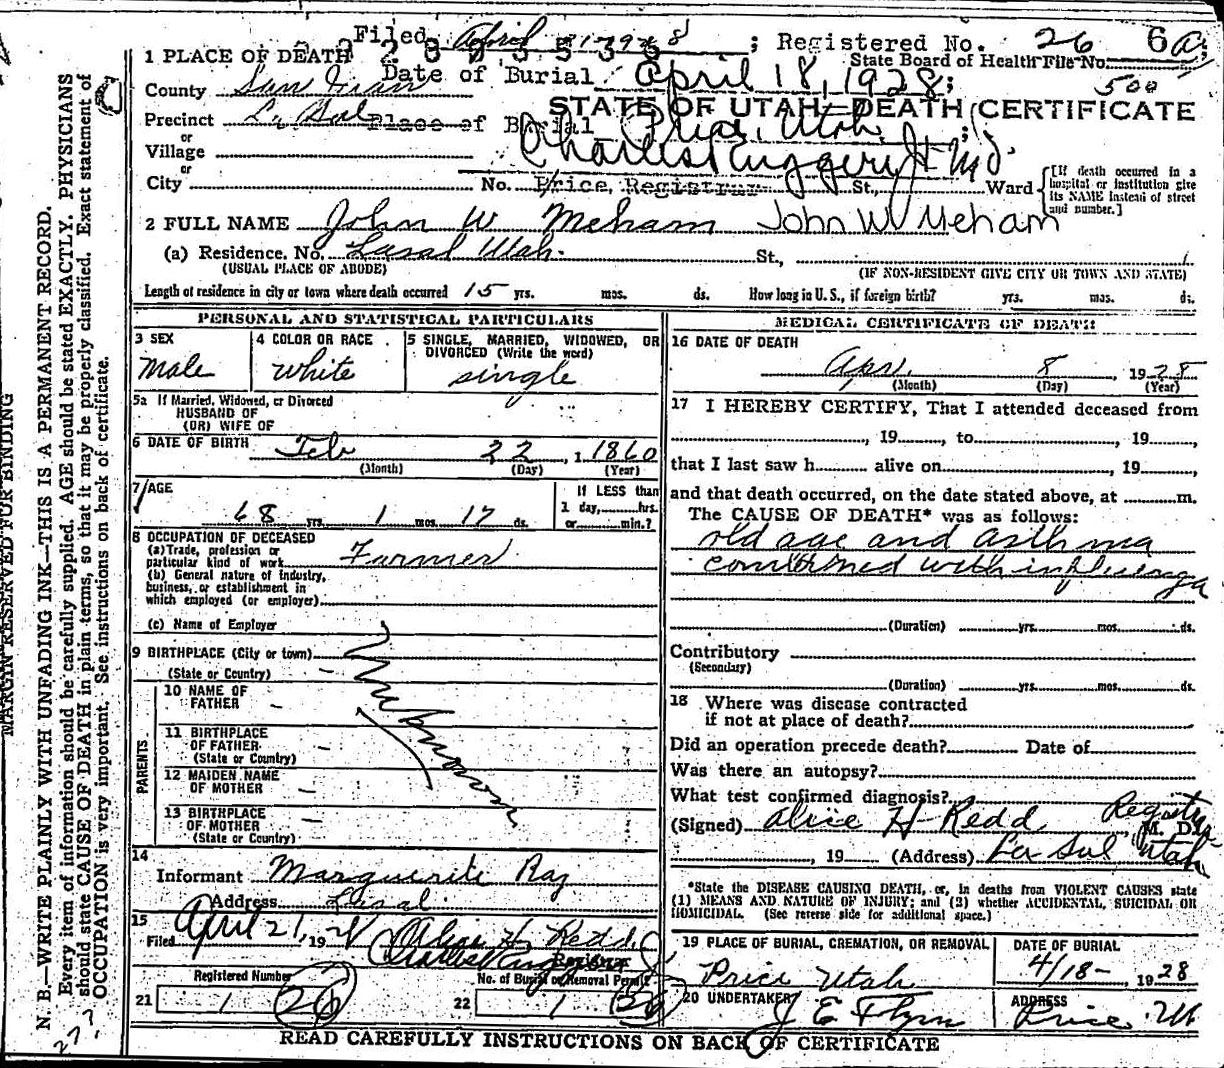 Filed April 1928; Registered No. 26 6a
1 PLACE OF DEATH
State Board of Health File No.
County San Juan
Date of Burial April 18, 1928;
500
STATE OF UTAH—DEATH CERTIFICATE
Precinct La Sal
Place of Burial Price, Utah;
or
Village
Charles Ruggeri Jr MD.
or
City No. Price, Registrar St., Ward
[If death occurred in a hospital or institution give its NAME instead of street and number.]
2 FULL NAME John W Meham John W Meham
(a) Residence. No. Lasal Utah. St.,
(USUAL PLACE OF ABODE) (IF NON-RESIDENT GIVE CITY OR TOWN AND STATE)
Length of residence in city or town where death occurred 15 yrs. mos. ds. How long in U. S., if foreign birth? yrs. mos. ds.
PERSONAL AND STATISTICAL PARTICULARS
3 SEX
Male
4 COLOR OR RACE
white
5 SINGLE, MARRIED, WIDOWED, OR DIVORCED (Write the word)
single
5a If Married, Widowed, or Divorced
HUSBAND OF
(OR) WIFE OF
6 DATE OF BIRTH Feb 22, 1860
(Month) (Day) (Year)
7 AGE
68 yrs. 1 mos. 17 ds.
If LESS than
1 day, hrs.
or min.?
8 OCCUPATION OF DECEASED
(a) Trade, profession or
particular kind of work Farmer
(b) General nature of industry,
business, or establishment in
which employed (or employer)
(c) Name of Employer
9 BIRTHPLACE (City or town)
(State or Country)
Unknown
PARENTS
10 NAME OF
FATHER
11 BIRTHPLACE
OF FATHER
(State or Country)
12 MAIDEN NAME
OF MOTHER
13 BIRTHPLACE
OF MOTHER
(State or Country)
14
Informant Marguerite Ray
Address Lasal
15
Filed April 21, 1928 Alice H Redd
Registered Number No. of Burial or Removal Permit
21 1 26 22 1 26
MEDICAL CERTIFICATE OF DEATH
16 DATE OF DEATH
Apr. 8, 1928
(Month) (Day) (Year)
17 I HEREBY CERTIFY, That I attended deceased from
, 19, to, 19,
that I last saw h alive on, 19,
and that death occurred, on the date stated above, at m.
The CAUSE OF DEATH* was as follows:
old age and asthma
combined with influenza
(Duration) yrs. mos. ds.
Contributory
(Secondary)
(Duration) yrs. mos. ds.
18 Where was disease contracted
if not at place of death?
Did an operation precede death? Date of
Was there an autopsy?
What test confirmed diagnosis?
(Signed) Alice H Redd Registrar M. D.
, 19 (Address) La Sal Utah
*State the DISEASE CAUSING DEATH, or, in deaths from VIOLENT CAUSES state
(1) MEANS AND NATURE OF INJURY; and (2) whether ACCIDENTAL, SUICIDAL OR
HOMICIDAL. (See reverse side for additional space.)
19 PLACE OF BURIAL, CREMATION, OR REMOVAL
Price Utah
DATE OF BURIAL
4/18- 1928
20 UNDERTAKER
J E Flynn
ADDRESS
Price Ut
READ CAREFULLY INSTRUCTIONS ON BACK OF CERTIFICATE
MARGIN RESERVED FOR BINDING
N. B.—WRITE PLAINLY WITH UNFADING INK—THIS IS A PERMANENT RECORD.
Every item of information should be carefully supplied. AGE should be stated EXACTLY. PHYSICIANS
should state CAUSE OF DEATH in plain terms, so that it may be properly classified. Exact statement of
OCCUPATION is very important. See instructions on back of certificate.